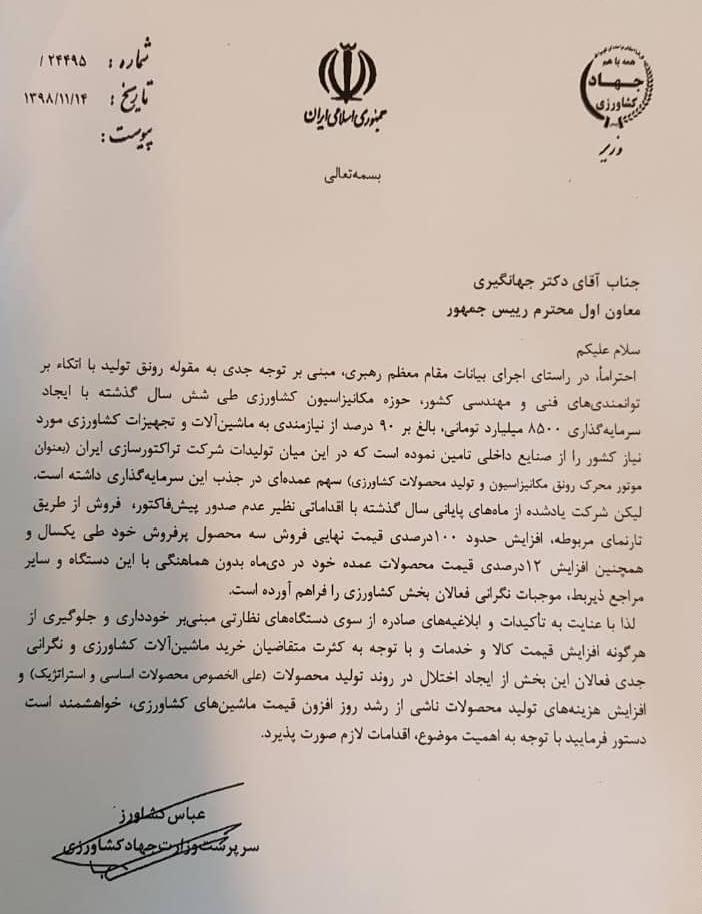 همه با هم
جهاد
کشاورزی
وزیر
جمهوری اسلامی ایران
شماره : ۲۴۴۹۵/
تاریخ : ۱۳۹۸/۱۱/۱۴
پیوست :
بسمه‌تعالی
جناب آقای دکتر جهانگیری
معاون اول محترم رییس جمهور
سلام علیکم
احتراماً، در راستای اجرای بیانات مقام معظم رهبری، مبنی بر توجه جدی به مقوله رونق تولید با اتکاء بر
توانمندی‌های فنی و مهندسی کشور، حوزه مکانیزاسیون کشاورزی طی شش سال گذشته با ایجاد
سرمایه‌گذاری ۸۵۰۰ میلیارد تومانی، بالغ بر ۹۰ درصد از نیازمندی به ماشین‌آلات و تجهیزات کشاورزی مورد
نیاز کشور را از صنایع داخلی تامین نموده است که در این میان تولیدات شرکت تراکتورسازی ایران (بعنوان
موتور محرک رونق مکانیزاسیون و تولید محصولات کشاورزی) سهم عمده‌ای در جذب این سرمایه‌گذاری داشته است.
لیکن شرکت یادشده از ماه‌های پایانی سال گذشته با اقداماتی نظیر عدم صدور پیش‌فاکتور، فروش از طریق
تارنمای مربوطه، افزایش حدود ۱۰۰درصدی قیمت نهایی فروش سه محصول پرفروش خود طی یکسال و
همچنین افزایش ۱۲درصدی قیمت محصولات عمده خود در دی‌ماه بدون هماهنگی با این دستگاه و سایر
مراجع ذیربط، موجبات نگرانی فعالان بخش کشاورزی را فراهم آورده است.
لذا با عنایت به تأکیدات و ابلاغیه‌های صادره از سوی دستگاه‌های نظارتی مبنی‌بر خودداری و جلوگیری از
هرگونه افزایش قیمت کالا و خدمات و با توجه به کثرت متقاضیان خرید ماشین‌آلات کشاورزی و نگرانی
جدی فعالان این بخش از ایجاد اختلال در روند تولید محصولات (علی الخصوص محصولات اساسی و استراتژیک) و
افزایش هزینه‌های تولید محصولات ناشی از رشد روز افزون قیمت ماشین‌های کشاورزی، خواهشمند است
دستور فرمایید با توجه به اهمیت موضوع، اقدامات لازم صورت پذیرد.
عباس کشاورز
سرپرست وزارت جهاد کشاورزی